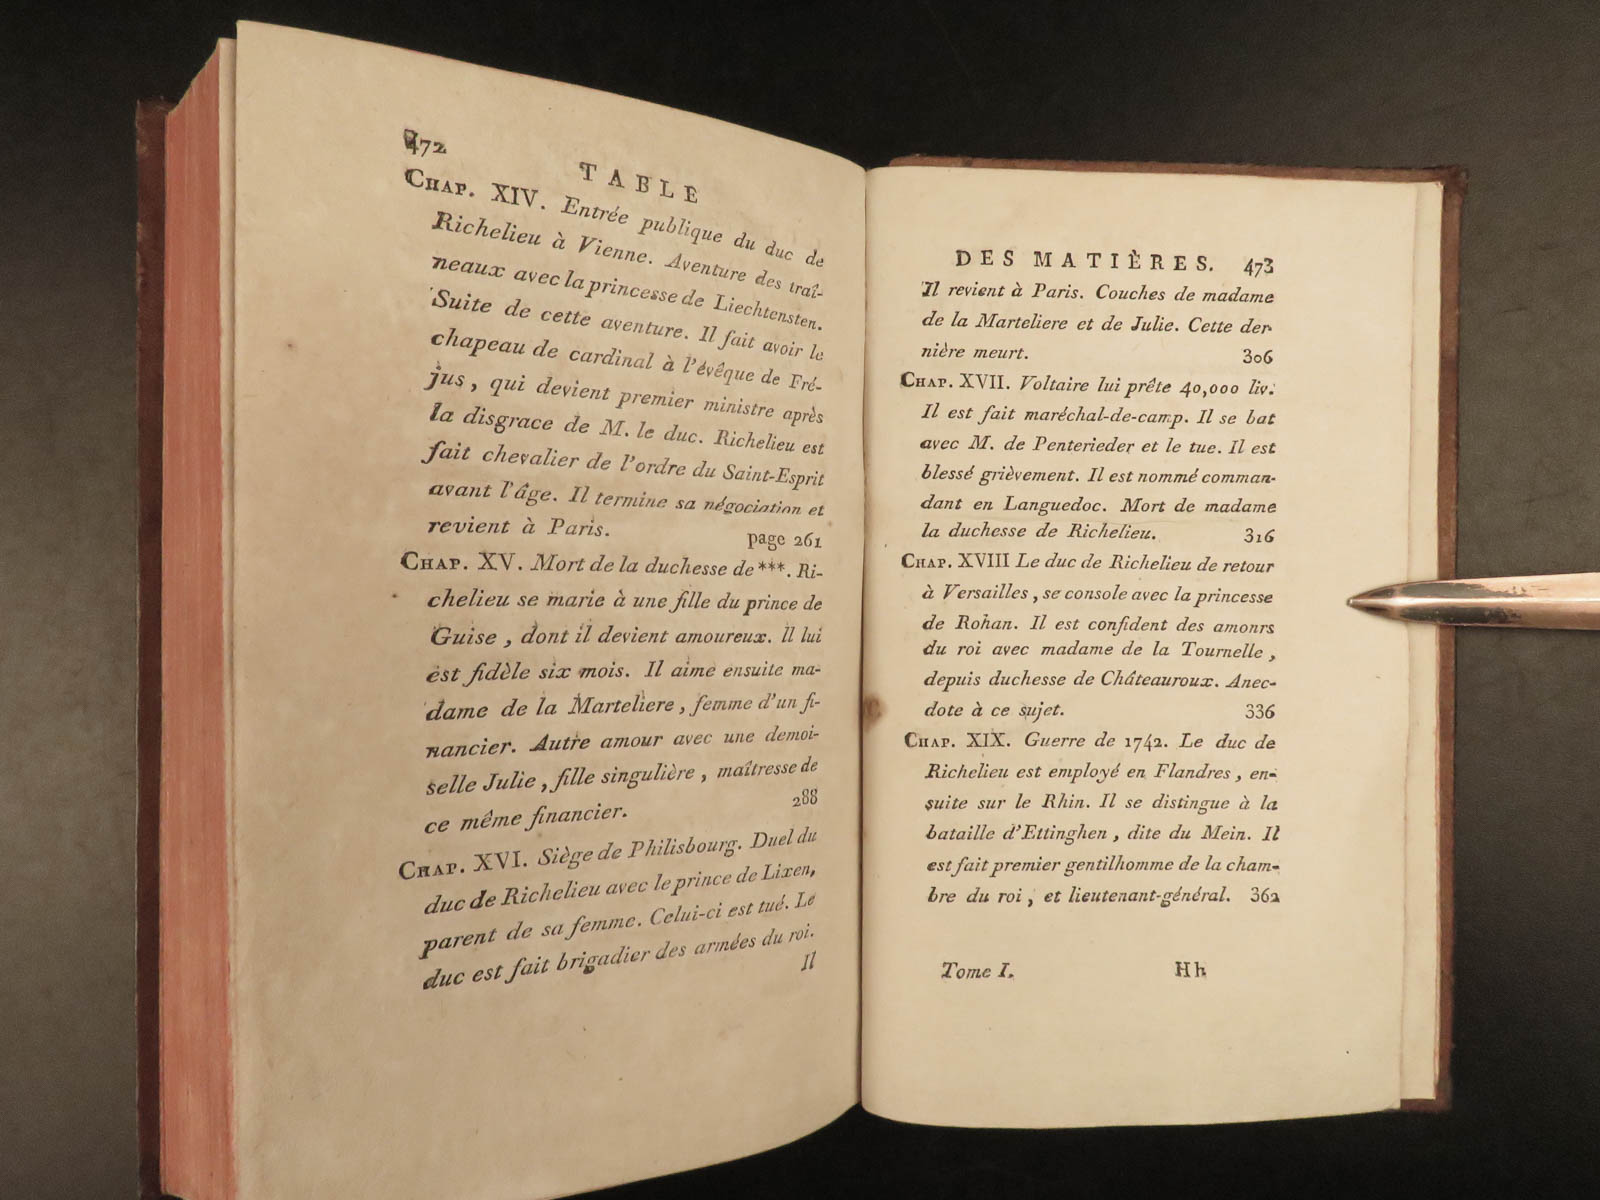 472
TABLE
CHAP. XIV. Entrée publique du duc de
Richelieu à Vienne. Aventure des traî-
neaux avec la princesse de Liechtensten.
Suite de cette aventure. Il fait avoir le
chapeau de cardinal à l'évêque de Fré-
jus, qui devient premier ministre après
la disgrace de M. le duc. Richelieu est
fait chevalier de l'ordre du Saint-Esprit
avant l'âge. Il termine sa négociation et
revient à Paris. page 261
CHAP. XV. Mort de la duchesse de ***. Ri-
chelieu se marie à une fille du prince de
Guise, dont il devient amoureux. Il lui
est fidèle six mois. Il aime ensuite ma-
dame de la Marteliere, femme d'un fi-
nancier. Autre amour avec une demoi-
selle Julie, fille singulière, maîtresse de
ce même financier. 288
CHAP. XVI. Siège de Philisbourg. Duel du
duc de Richelieu avec le prince de Lixen,
parent de sa femme. Celui-ci est tué. Le
duc est fait brigadier des armées du roi.
Il
DES MATIÈRES. 473
Il revient à Paris. Couches de madame
de la Marteliere et de Julie. Cette der-
nière meurt. 306
CHAP. XVII. Voltaire lui prête 40,000 liv.
Il est fait maréchal-de-camp. Il se bat
avec M. de Penterieder et le tue. Il est
blessé grièvement. Il est nommé comman-
dant en Languedoc. Mort de madame
la duchesse de Richelieu. 316
CHAP. XVIII Le duc de Richelieu de retour
à Versailles, se console avec la princesse
de Rohan. Il est confident des amonrs
du roi avec madame de la Tournelle,
depuis duchesse de Châteauroux. Anec-
dote à ce sujet. 336
CHAP. XIX. Guerre de 1742. Le duc de
Richelieu est employé en Flandres, en-
suite sur le Rhin. Il se distingue à la
bataille d'Ettinghen, dite du Mein. Il
est fait premier gentilhomme de la cham-
bre du roi, et lieutenant-général. 362
Tome I. Hh